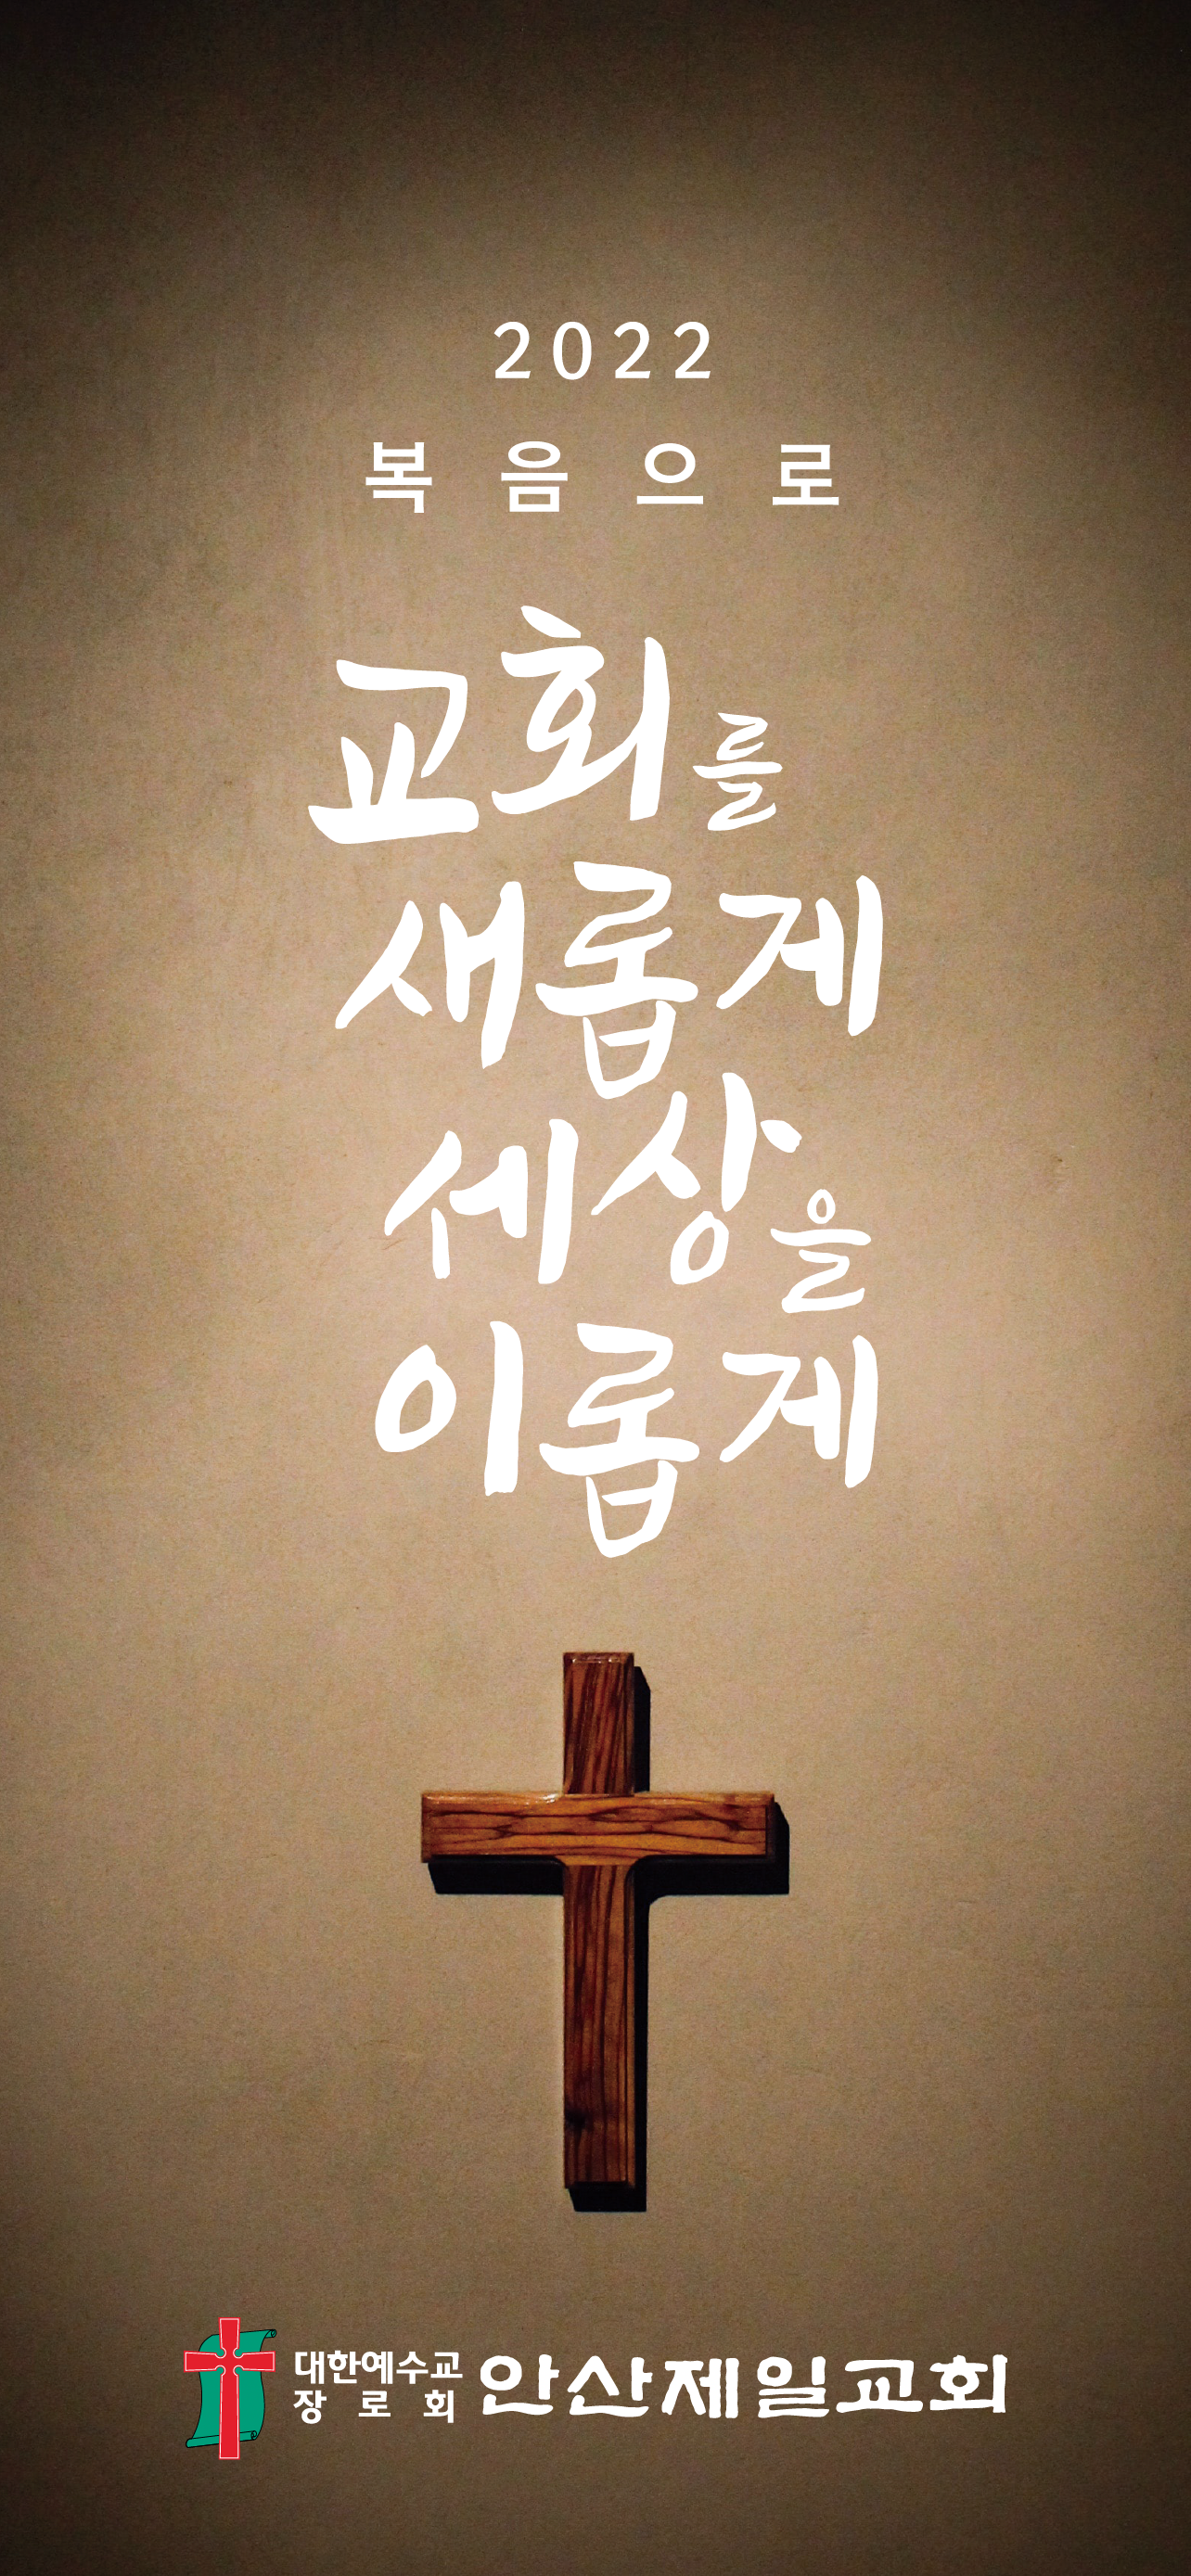 2022
복음으로
교회를
새롭게
세상을
이롭게
대한예수교
장로회
안산제일교회